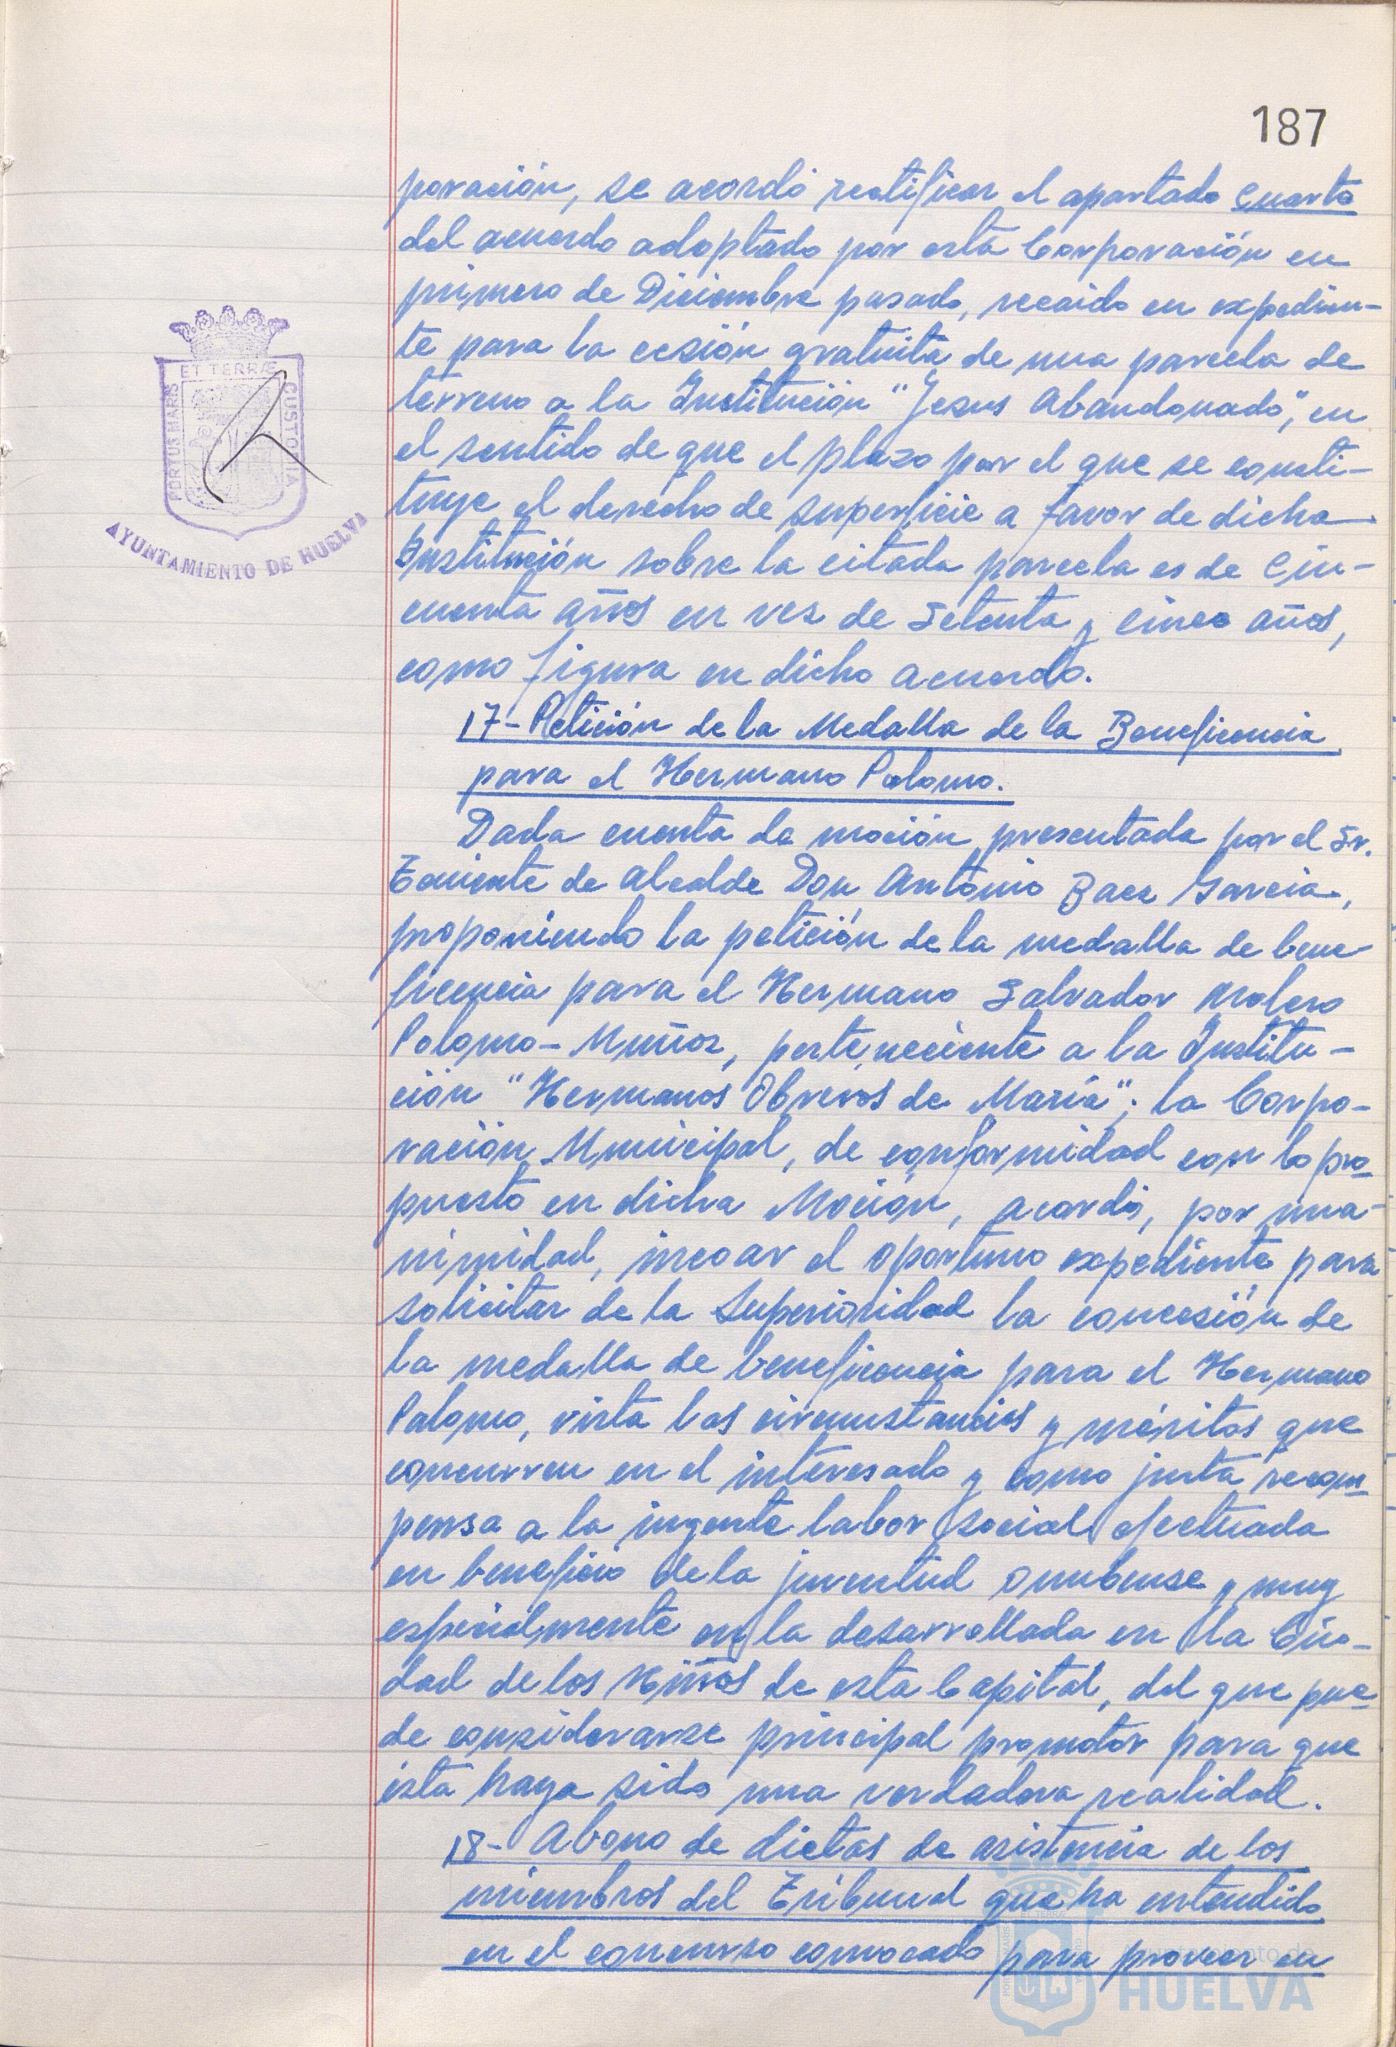 187
poración, se acordó rectificar el apartado cuarto
del acuerdo adoptado por esta Corporación en
primero de Diciembre pasado, recaido en expedien-
te para la cesión gratuita de una parcela de
terreno a la Institución "Jesus Abandonado", en
el sentido de que el plazo por el que se consti-
tuye el derecho de superficie a favor de dicha
Institución sobre la citada parcela es de Cin-
cuenta años en vez de Setenta y cinco años,
como figura en dicho acuerdo.
17- Petición de la Medalla de la Beneficencia
para el Hermano Palomo.
Dada cuenta de moción presentada por el Sr.
Teniente de Alcalde Don Antonio Baez Garcia,
proponiendo la petición de la medalla de bene-
ficencia para el Hermano Salvador Molero
Palomo-Muñoz, perteneciente a la Institu-
ción "Hermanos Obreros de María"; la Corpo-
ración Municipal, de conformidad con lo pro-
puesto en dicha Moción, acordó, por una-
nimidad, incoar el oportuno expediente para
solicitar de la Superioridad la concesión de
la medalla de beneficencia para el Hermano
Palomo, vista las circunstancias y méritos que
concurren en el interesado y como justa recom-
pensa a la ingente labor social efectuada
en beneficio de la juventud onubense y muy
especialmente en la desarrollada en la Ciu-
dad de los Niños de esta Capital, del que pue-
de considerarse principal promotor para que
ésta haya sido una verdadera realidad.
18- Abono de dietas de asistencia de los
miembros del Tribunal que ha entendido
en el concurso convocado para proveer en
PORTUS MARIS ET TERRAE CUSTODIA
AYUNTAMIENTO DE HUELVA
Ayuntamiento de
HUELVA